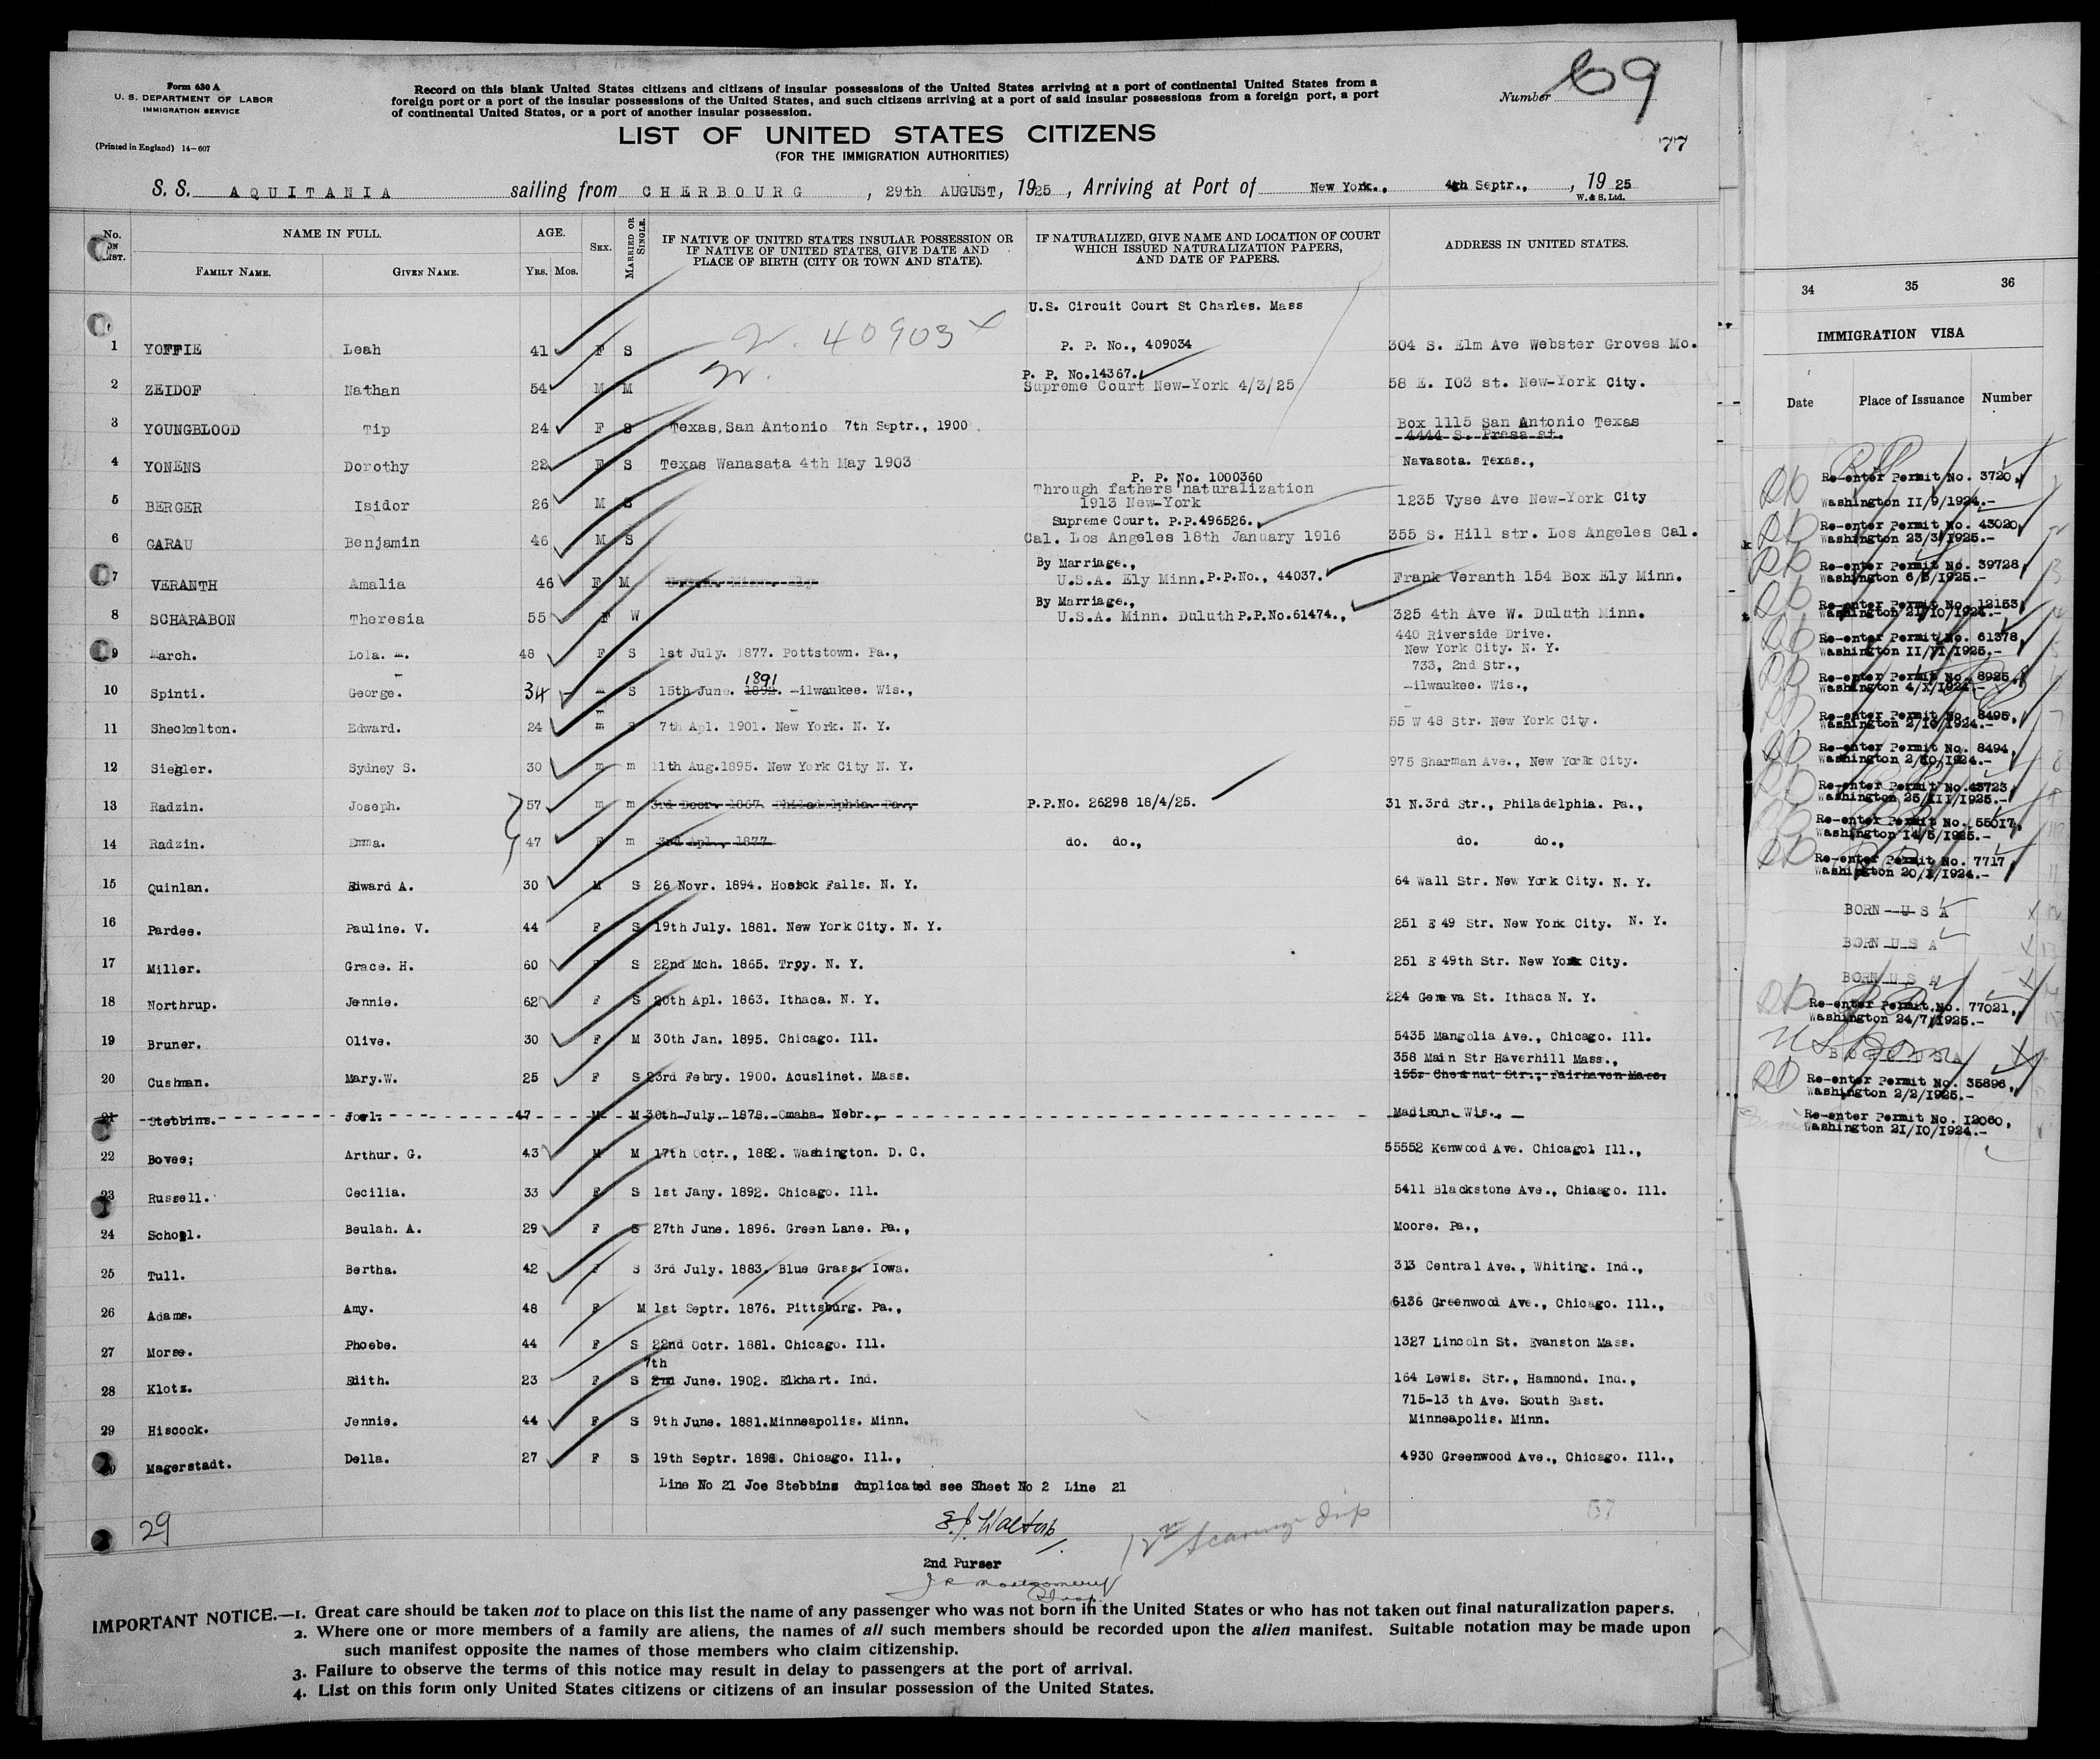 Form 630 A
U. S. DEPARTMENT OF LABOR
IMMIGRATION SERVICE
(Printed in England) 14-607
Record on this blank United States citizens and citizens of insular possessions of the United States arriving at a port of continental United States from a
foreign port or a port of the insular possessions of the United States, and such citizens arriving at a port of said insular possessions from a foreign port, a port
of continental United States, or a port of another insular possession.
Number 69
77
LIST OF UNITED STATES CITIZENS
(FOR THE IMMIGRATION AUTHORITIES)
S. S. AQUITANIA sailing from CHERBOURG, 29th AUGUST, 1925, Arriving at Port of New York., 4th Septr., , 1925
W. & S. Ltd.
No. ON LIST. NAME IN FULL. AGE. SEX. MARRIED OR SINGLE. IF NATIVE OF UNITED STATES INSULAR POSSESSION OR IF NATIVE OF UNITED STATES, GIVE DATE AND PLACE OF BIRTH (CITY OR TOWN AND STATE). IF NATURALIZED, GIVE NAME AND LOCATION OF COURT WHICH ISSUED NATURALIZATION PAPERS, AND DATE OF PAPERS. ADDRESS IN UNITED STATES.
FAMILY NAME. GIVEN NAME. YRS. MOS.
U.S. Circuit Court St Charles. Mass
1 YOFFIE Leah 41 F S 40903 P. P. No., 409034 304 S. Elm Ave Webster Groves Mo.
P. P. No.14367.
2 ZEIDOF Nathan 54 M M Supreme Court New-York 4/3/25 58 E. 103 st. New-York City.
3 YOUNGBLOOD Tip 24 F S Texas, San Antonio 7th Septr., 1900 Box 1115 San Antonio Texas
4444 S. Presa st.
4 YONENS Dorothy 22 F S Texas Wanasata 4th May 1903 Navasota. Texas.,
P. P. No. 1000360
Through fathers naturalization
5 BERGER Isidor 26 M S 1913 New-York 1235 Vyse Ave New-York City
Supreme Court. P.P.496526.
6 GARAU Benjamin 46 M S Cal. Los Angeles 18th January 1916 355 S. Hill str. Los Angeles Cal.
By Marriage.,
7 VERANTH Amalia 46 F M U.S.A. Ely Minn. P.P.No., 44037. Frank Veranth 154 Box Ely Minn.
By Marriage.,
8 SCHARABON Theresia 55 F W U.S.A. Minn. Duluth P.P.No.61474., 325 4th Ave W. Duluth Minn.
440 Riverside Drive.
9 March. Lola. m. 48 F S 1st July. 1877. Pottstown. Pa., New York City. N. Y.
733, 2nd Str.,
10 Spinti. George. 34 m S 15th June. 1892. 1891 milwaukee. Wis., milwaukee. Wis.,
11 Sheckelton. Edward. 24 m S 7th Apl. 1901. New York. N. Y. 55 W 48 Str. New York City.
12 Siegler. Sydney S. 30 m m 11th Aug.1895. New York City N. Y. 975 Sharman Ave., New York City.
13 Radzin. Joseph. 57 m m 3rd Decr. 1867. Philadelphia. Pa., P.P.No. 26298 18/4/25. 31 N.3rd Str., Philadelphia. Pa.,
14 Radzin. Emma. 47 F m 3rd Apl., 1877 do. do., do. do.,
15 Quinlan. Edward A. 30 M S 26 Novr. 1894. Hosick Falls. N. Y. 64 Wall Str. New York City. N. Y.
16 Pardee. Pauline. V. 44 F S 19th July. 1881. New York City. N. Y. 251 E 49 Str. New York City. N. Y.
17 Miller. Grace. H. 60 F S 22nd Mch. 1865. Troy. N. Y. 251 E 49th Str. New York City.
18 Northrup. Jennie. 62 F S 20th Apl. 1863. Ithaca. N. Y. 224 Geneva St. Ithaca N. Y.
19 Bruner. Olive. 30 F M 30th Jan. 1895. Chicago. Ill. 5435 Mangolia Ave., Chicago. Ill.
358 Main Str Haverhill Mass.,
20 Cushman. Mary.W. 25 F S 23rd Febry. 1900. Acuslinet. Mass. 155. Chestnut Str., Fairhaven Mass.
21 Stebbins. Joel. 47 M M 30th July. 1878. Omaha Nebr., Madison. Wis.,
22 Bovee; Arthur. G. 43 M M 17th Octr., 1882. Washington. D. C. 55552 Kenwood Ave. Chicago1 Ill.,
23 Russell. Cecilia. 33 F S 1st Jany. 1892. Chicago. Ill. 5411 Blackstone Ave., Chicago. Ill.
24 Schoel. Beulah. A. 29 F S 27th June. 1896. Green Lane. Pa., Moore. Pa.,
25 Tull. Bertha. 42 F S 3rd July. 1883. Blue Grass. Iowa. 313 Central Ave., Whiting. Ind.,
26 Adams. Amy. 48 F M 1st Septr. 1876. Pittsburg. Pa., 6136 Greenwood Ave., Chicago. Ill.,
27 Morse. Phoebe. 44 F S 22nd Octr. 1881. Chicago. Ill. 1327 Lincoln St. Evanston Mass.
7th
28 Klotz. Edith. 23 F S 2nd June. 1902. Elkhart. Ind. 164 Lewis. Str., Hammond. Ind.,
715-13 th Ave. South East.
29 Hiscock. Jennie. 44 F S 9th June. 1881.Minneapolis. Minn. Minneapolis. Minn.
30 Magerstadt. Della. 27 F S 19th Septr. 1898. Chicago. Ill., 4930 Greenwood Ave., Chicago. Ill.,
Line No 21 Joe Stebbins duplicated see Sheet No 2 Line 21
29
E. J. Walton
57
2nd Purser
J R Montgomery
IMPORTANT NOTICE.—1. Great care should be taken not to place on this list the name of any passenger who was not born in the United States or who has not taken out final naturalization papers.
2. Where one or more members of a family are aliens, the names of all such members should be recorded upon the alien manifest. Suitable notation may be made upon
such manifest opposite the names of those members who claim citizenship.
3. Failure to observe the terms of this notice may result in delay to passengers at the port of arrival.
4. List on this form only United States citizens or citizens of an insular possession of the United States.
34 35 36
IMMIGRATION VISA
Date Place of Issuance Number
Re-enter Permit No. 3720,
Washington II/9/1924.-
Re-enter Permit No. 43020,
Washington 23/3/1925.-
Re-enter Permit No. 39728,
Washington 6/3/1925.-
Re-enter Permit No. 12153,
Washington 21/10/1924.-
Re-enter Permit No. 61378,
Washington II/VI/1925.-
Re-enter Permit No. 8925,
Washington 4/X/1924.-
Re-enter Permit No. 8495,
Washington 2/10/1924.-
Re-enter Permit No. 8494,
Washington 2/10/1924.-
Re-enter Permit No.43723
Washington 25/III/1925.-
Re-enter Permit No. 55017,
Washington 14/5/1925.-
Re-enter Permit No. 7717,
Washington 20/I/1924.-
BORN U S A
BORN U S A
BORN U S A
Re-enter Permit.No. 77021,
Washington 24/7/1925.-
US Born
BORN USA
Re-enter Permit No. 35896,
Washington 2/2/1925.-
Re-enter Permit No. I2060,
Washington 21/10/1924.-